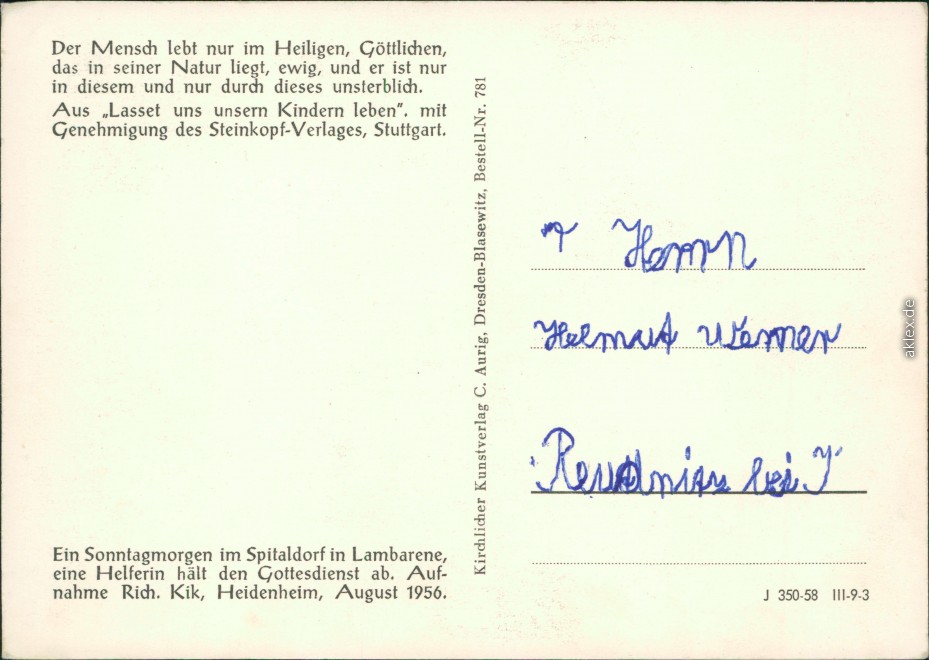 Der Mensch lebt nur im Heiligen, Göttlichen,
das in seiner Natur liegt, ewig, und er ist nur
in diesem und nur durch dieses unsterblich.
Aus „Lasset uns unsern Kindern leben". mit
Genehmigung des Steinkopf-Verlages, Stuttgart.
Ein Sonntagmorgen im Spitaldorf in Lambarene,
eine Helferin hält den Gottesdienst ab. Auf-
nahme Rich. Kik, Heidenheim, August 1956.
Kirchlicher Kunstverlag C. Aurig, Dresden-Blasewitz, Bestell-Nr. 781
Herrn
Helmut Werner
bei
J 350-58 III-9-3
aklex.de